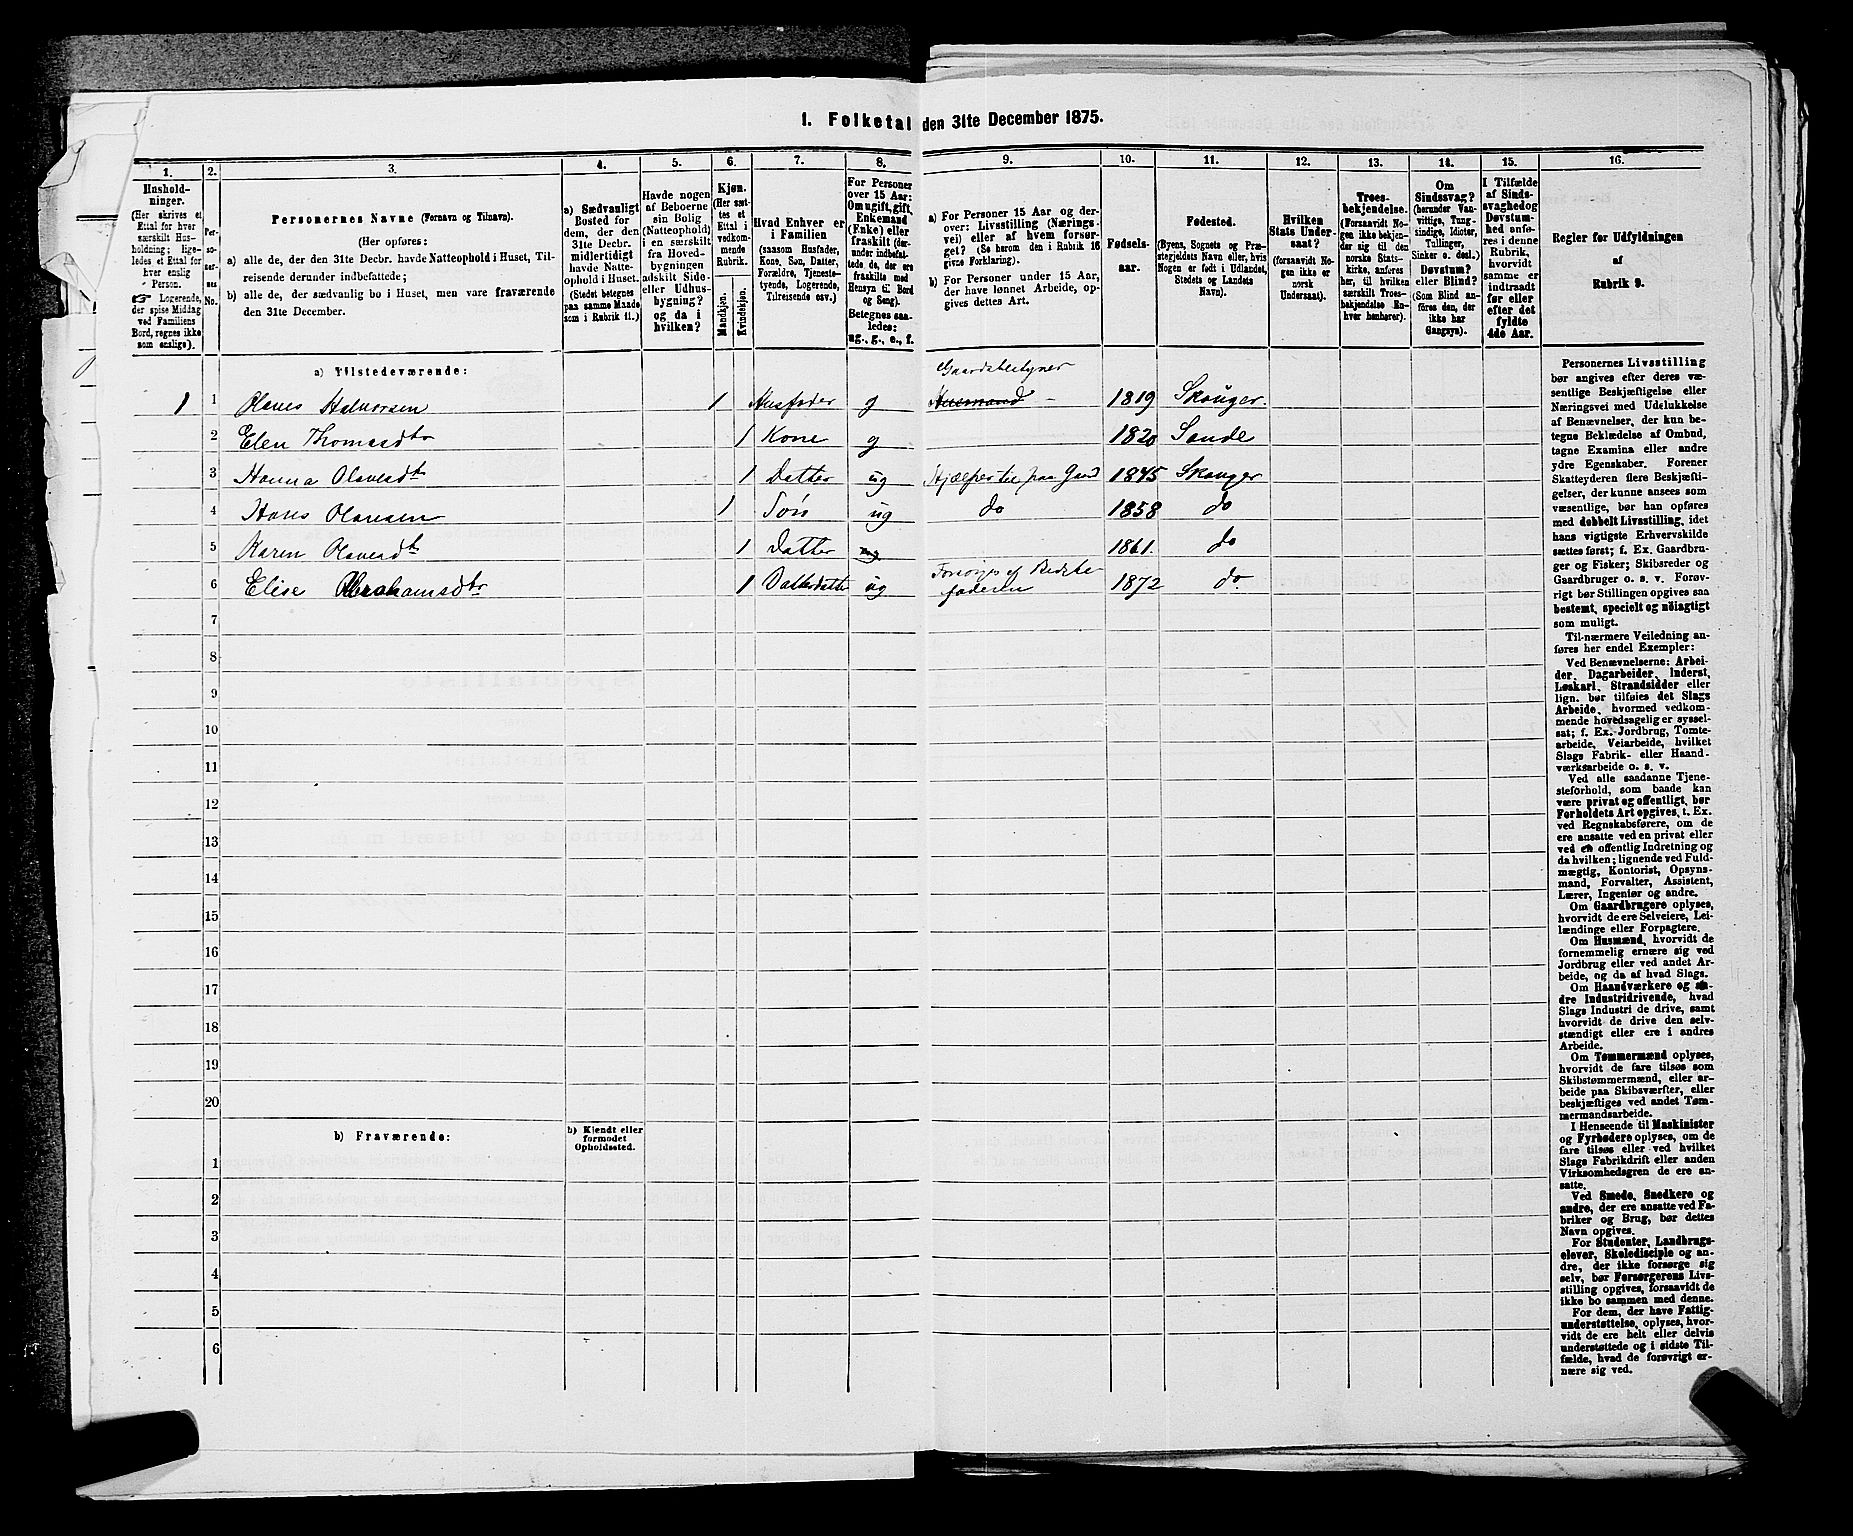 1. Folketal den 31te December 1875.
1. 2. 3. 4. 5. 6. 7. 8. 9. 10. 11. 12. 13. 14. 15. 16.
Hushold-
ninger.
(Her skrives et
Ettal for hver
særskilt Hus-
holdning; lige-
ledes et Ettal for
hver enslig
Person.
☞ Logerende,
der spise Middag
ved Familiens
Bord, regnes ikke
som enslige).
Per-
so-
ner-
nes
No.
Personernes Navne (Fornavn og Tilnavn).
(Her opføres:
a) alle de, der den 31te Decbr. havde Natteophold i Huset, Til-
reisende derunder indbefattede;
b) alle de, der sædvanlig bo i Huset, men vare fraværende
den 31te December.
a) Sædvanligt
Bosted for
dem, der den
31te Decbr.
midlertidigt
havde Natte-
ophold i Huset.
(Stedet betegnes
paa samme Maade
som i Rubrik 11.)
Havde nogen
af Beboerne
sin Bolig
(Natteophold)
i en særskilt
fra Hoved-
bygningen
adskilt Side-
eller Udhus-
bygning?
og da i
hvilken?
Kjøn.
(Her sæt-
tes et
Ettal i
vedkom-
mende
Rubrik.
Mandkjøn.
Kvindekjøn.
Hvad Enhver er
i Familien
(saasom Husfader,
Kone, Søn, Datter,
Forældre, Tjeneste-
tyende, Logerende,
Tilreisende osv.)
For Personer
over 15 Aar:
Om ugift, gift,
Enkemand
(Enke) eller
fraskilt (der-
under indbefat-
tede de, der ere
fraskilte med
Hensyn til Bord
og Seng).
Betegnes saa-
ledes:
ug., g., e., f.
a) For Personer 15 Aar og der-
over: Livsstilling (Nærings-
vei) eller af hvem forsør-
get? (Se herom den i Rubrik 16
givne Forklaring).
b) For Personer under 15 Aar,
der have lønnet Arbeide, op-
gives dettes Art.
Fødsels-
aar.
Fødested.
(Byens, Sognets og Præ-
stegjeldets Navn eller, hvis
Nogen er født i Udlandet,
Stedets og Landets
Navn).
Hvilken
Stats Under-
saat?
(forsaavidt No-
gen ikke er
norsk
Undersaat).
Troes-
bekjendelse.
(Forsaavidt No-
gen ikke bekjen-
der sig til den
norske Stats-
kirke, anføres
her, til hvilken
særskilt Troes-
bekjendelse En-
hver henhører).
Om
Sindssvag?
(herunder Van-
vittige, Tung-
sindige, Idioter,
Tullinger,
Sinker o. desl.)
Døvstum?
eller Blind?
(Som Blind an-
føres den, der
ikke har
Gangsyn).
I Tilfælde
af Sinds-
svaghed og
Døvstum-
hed anfø-
res i denne
Rubrik,
hvorvidt
samme er
indtraadt
før eller
efter det
fyldte
4de Aar.
Regler for Udfyldningen
af
Rubrik 9.
a) Tilstedeværende:
Gaardsbestyrer
1 1 Olaves Halvorsen 1 Husfader g Husmand - 1819 Skouger.
2 Elen Thomasdtr 1 Kone g 1820 Sande
3 Hanna Olavesdt 1 Datter ug Hjælper til paa Gaard 1845 Skouger
4 Hans Olavesen 1 Søn ug do 1858 do
5 Karen Olavesdt 1 Datter ug 1861. do
6 Elise Abrahamsdtr 1 Datterdatter ug Forsørges af Bedste-
faderen 1872 do.
7
8
9
10
11
12
13
14
15
16
17
18
19
20
b) Fraværende:
b) Kjendt eller
formodet
Opholdssted.
1
2
3
4
5
6
Personernes Livsstilling
bør angives efter deres væ-
sentlige Beskjæftigelse eller
Næringsvei med Udelukkelse
af Benævnelser, der kun be-
tegne Beklædelse af Ombud,
tagne Examina eller andre
ydre Egenskaber. Forener
Skatteyderen flere Beskjæfti-
gelser, der kunne ansees som
væsentlige, bør han opføres
med dobbelt Livsstilling, idet
hans vigtigste Erhvervskilde
sættes først; f. Ex. Gaardbru-
ger og Fisker; Skibsreder og
Gaardbruger o. s. v. Forøv-
rigt bør Stillingen opgives saa
bestemt, specielt og nøiagtigt
som muligt.
Til nærmere Veiledning an-
føres her endel Exempler:
Ved Benævnelserne: Arbei-
der, Dagarbeider, Inderst,
Løskarl, Strandsidder eller
lign. bør tilføies det Slags
Arbeide, hvormed vedkom-
mende hovedsagelig er syssel-
sat; f. Ex. Jordbrug, Tomte-
arbeide, Veiarbeide, hvilket
Slags Fabrik- eller Haand-
værksarbeide o. s. v.
Ved alle saadanne Tjene-
steforhold, som baade kan
være privat og offentligt, bør
Forholdets Art opgives, t. Ex.
ved Regnskabsførere, om de
ere ansatte ved en privat eller
ved en offentlig Indretning og
da hvilken; lignende ved Fuld-
mægtig, Kontorist, Opsyns-
mand, Forvalter, Assistent,
Lærer, Ingeniør og andre.
Om Gaardbrugere oplyses,
hvorvidt de ere Selveiere, Lei-
lændinge eller Forpagtere.
Om Husmænd, hvorvidt de
fornemmelig ernære sig ved
Jordbrug eller ved andet Ar-
beide, og da af hvad Slags.
Om Haandværkere og an-
dre Industridrivende, hvad
Slags Industri de drive, samt
hvorvidt de drive den selv-
stændigt eller ere i andres
Arbeide.
Om Tømmermænd oplyses,
hvorvidt de fare tilsøs som
Skibstømmermænd, eller ar-
beide paa Skibsværfter, eller
beskjæftiges ved andet Tøm-
mermandsarbeide.
I Henseende til Maskinister
og Fyrbødere oplyses, om de
fare tilsøs eller ved hvilket
Slags Fabrikdrift eller anden
Virksomhedsgren de ere an-
satte.
Ved Smede, Snedkere og
andre, der ere ansatte ved Fa-
briker og Brug, bør dettes
Navn opgives.
For Studenter, Landbrugs-
elever, Skoledisciple og an-
dre, der ikke forsørge sig
selv, bør Forsørgerens Livs-
stilling opgives, forsaavidt de
ikke bo sammen med denne.
For dem, der have Fattig-
understøttelse, oplyses, hvor-
vidt de ere helt eller delvis
understøttede og i sidste Til-
fælde, hvad de forøvrigt er-
nære sig ved.